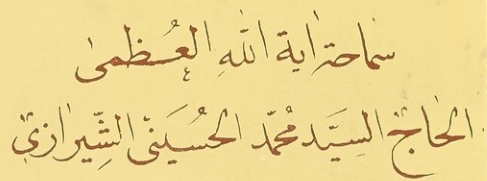 سماحة اية اللهِ العُظمى
الحاجّ السيَّد محُمّد الحُسيَنيّ الشِّيرازيّ